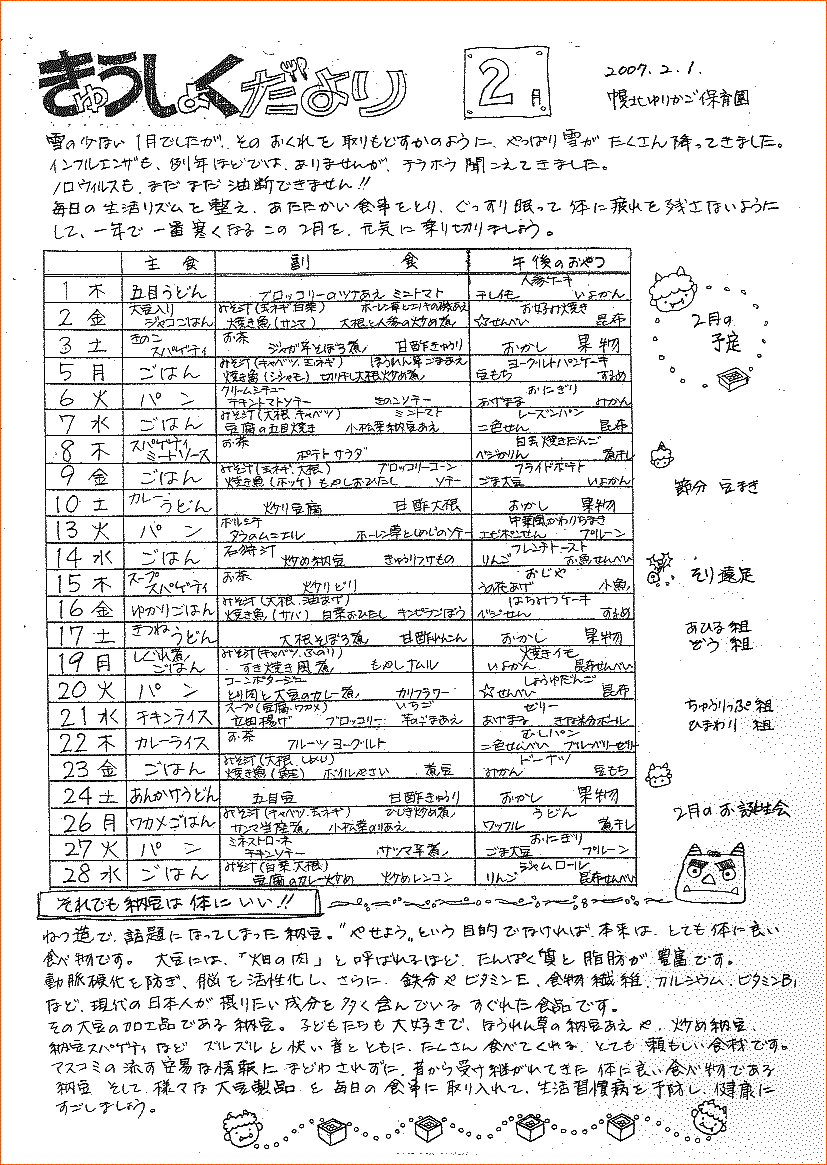 きゅうしょくだより
2月
2007.2.1.
幌北ゆりかご保育園
雪の少ない1月でしたが、そのおくれを取りもどすかのように、やっぱり雪がたくさん降ってきました。
インフルエンザも、例年ほどでは、ありませんが、チラホラ聞こえてきました。
ノロウィルスも、まだまだ油断できません!!
毎日の生活リズムを整え、あたたかい食事をとり、ぐっすり眠って体に疲れを残さないように
して、一年で一番寒くなるこの2月を、元気に乗り切りましょう。
主食 副食 午後のおやつ
1 木 五目うどん ブロッコリーのツナあえ ミニトマト 人参ケーキ テレイモ いよかん
2 金 大豆入りジャコごはん みそ汁(玉ネギ 白菜) 焼き魚(サンマ) 大根と人参の炒め煮 お好み焼き ☆せんべい 昆布
3 土 きのこスパゲティ お茶 ジャガ芋そぼろ煮 甘酢きゅうり おかし 果物
5 月 ごはん みそ汁(キャベツ、玉ネギ) ほうれん草ごまあえ 焼き魚(シシャモ) 切り干し大根炒め煮 ヨーグルトパンケーキ 豆もち するめ
6 火 パン クリームシチュー チキントマトソテー きのこソテー おにぎり あげまる みかん
7 水 ごはん みそ汁(大根 キャベツ) ミニトマト 豆腐の五目焼き 小松菜納豆あえ レーズンパン 二色せん 昆布
8 木 スパゲティミートソース お茶 ポテトサラダ 白玉焼きだんご ベジかりん 煮干し
9 金 ごはん みそ汁(玉ネギ、大根) ブロッコリーコーンソテー 焼き魚(ホッケ) もやしおひたし フライドポテト ごま大豆 いよかん
10 土 カレーうどん 炒り豆腐 甘酢大根 おかし 果物
13 火 パン ボルシチ タラのムニエル ホーレン草としめじのソテー 中華風かわりちまき エビポンせん プルーン
14 水 ごはん 石狩汁 炒め納豆 きゅうりつけもの フレンチトースト りんご お魚せんべい
15 木 スープスパゲティ お茶 炒りどり おじや うの花あげ 小魚
16 金 ゆかりごはん みそ汁(大根、油あげ) 焼き魚(サバ) 白菜おひたし キンピラごぼう はちみつケーキ ベジせん するめ
17 土 きつねうどん 大根そぼろ煮 甘酢れんこん おかし 果物
19 月 しぐれ煮ごはん みそ汁(キャベツ、ふのり) すき焼き風煮 もやしナムル 焼きイモ いよかん 昆布せんべい
20 火 パン コーンポタージュ とり肉と大豆のカレー煮 カリフラワー しょうゆだんご ☆せんべい 昆布
21 水 チキンライス スープ(豆腐・ワカメ) いちご 立田揚げ ブロッコリー 芋のごまあえ ゼリー あげまる きな粉ボール
22 木 カレーライス お茶 フルーツヨーグルト むしパン 二色せんべい ブルーベリーゼリー
23 金 ごはん みそ汁(大根、しめじ) 焼き魚 ボイルやさい 煮豆 ドーナツ みかん 豆もち
24 土 あんかけうどん 五目豆 甘酢きゅうり おかし 果物
26 月 ワカメごはん みそ汁(キャベツ、玉ネギ) ひじき炒め煮 サンマ 小松菜のりあえ うどん ワッフル 煮干し
27 火 パン ミネストローネ チキンソテー サツマ芋煮 おにぎり ごま大豆 プルーン
28 水 ごはん みそ汁(白菜 大根) 豆腐のカレー炒め 炒めレンコン ジャムロール りんご 昆布せんべい
2月の
予定
節分 豆まき
そり遠足
あひる組
ぞう 組
ちゅうりっぷ組
ひまわり 組
2月のお誕生会
それでも納豆は体にいい!!
ねつ造で、話題になってしまった納豆。"やせよう"という目的でなければ、本来は、とても体に良い
食べ物です。 大豆には、「畑の肉」と呼ばれるほど、たんぱく質と脂肪が豊富です。
動脈硬化を防ぎ、脳を活性化し、さらに、鉄分やビタミンE、食物繊維、カルシウム、ビタミンB₁
など、現代の日本人が摂りたい成分を多く含んでいるすぐれた食品です。
その大豆の加工品である納豆。子どもたちも大好きで、ほうれん草の納豆あえや、炒め納豆、
納豆スパゲティなど ズルズルと快い音とともに、たくさん食べてくれる、とても頼もしい食材です。
マスコミの流す安易な情報にまどわされずに、昔から受け継がれてきた体に良い食べ物である
納豆、そして、様々な大豆製品を毎日の食事に取り入れて、生活習慣病を予防し、健康に
すごしましょう。